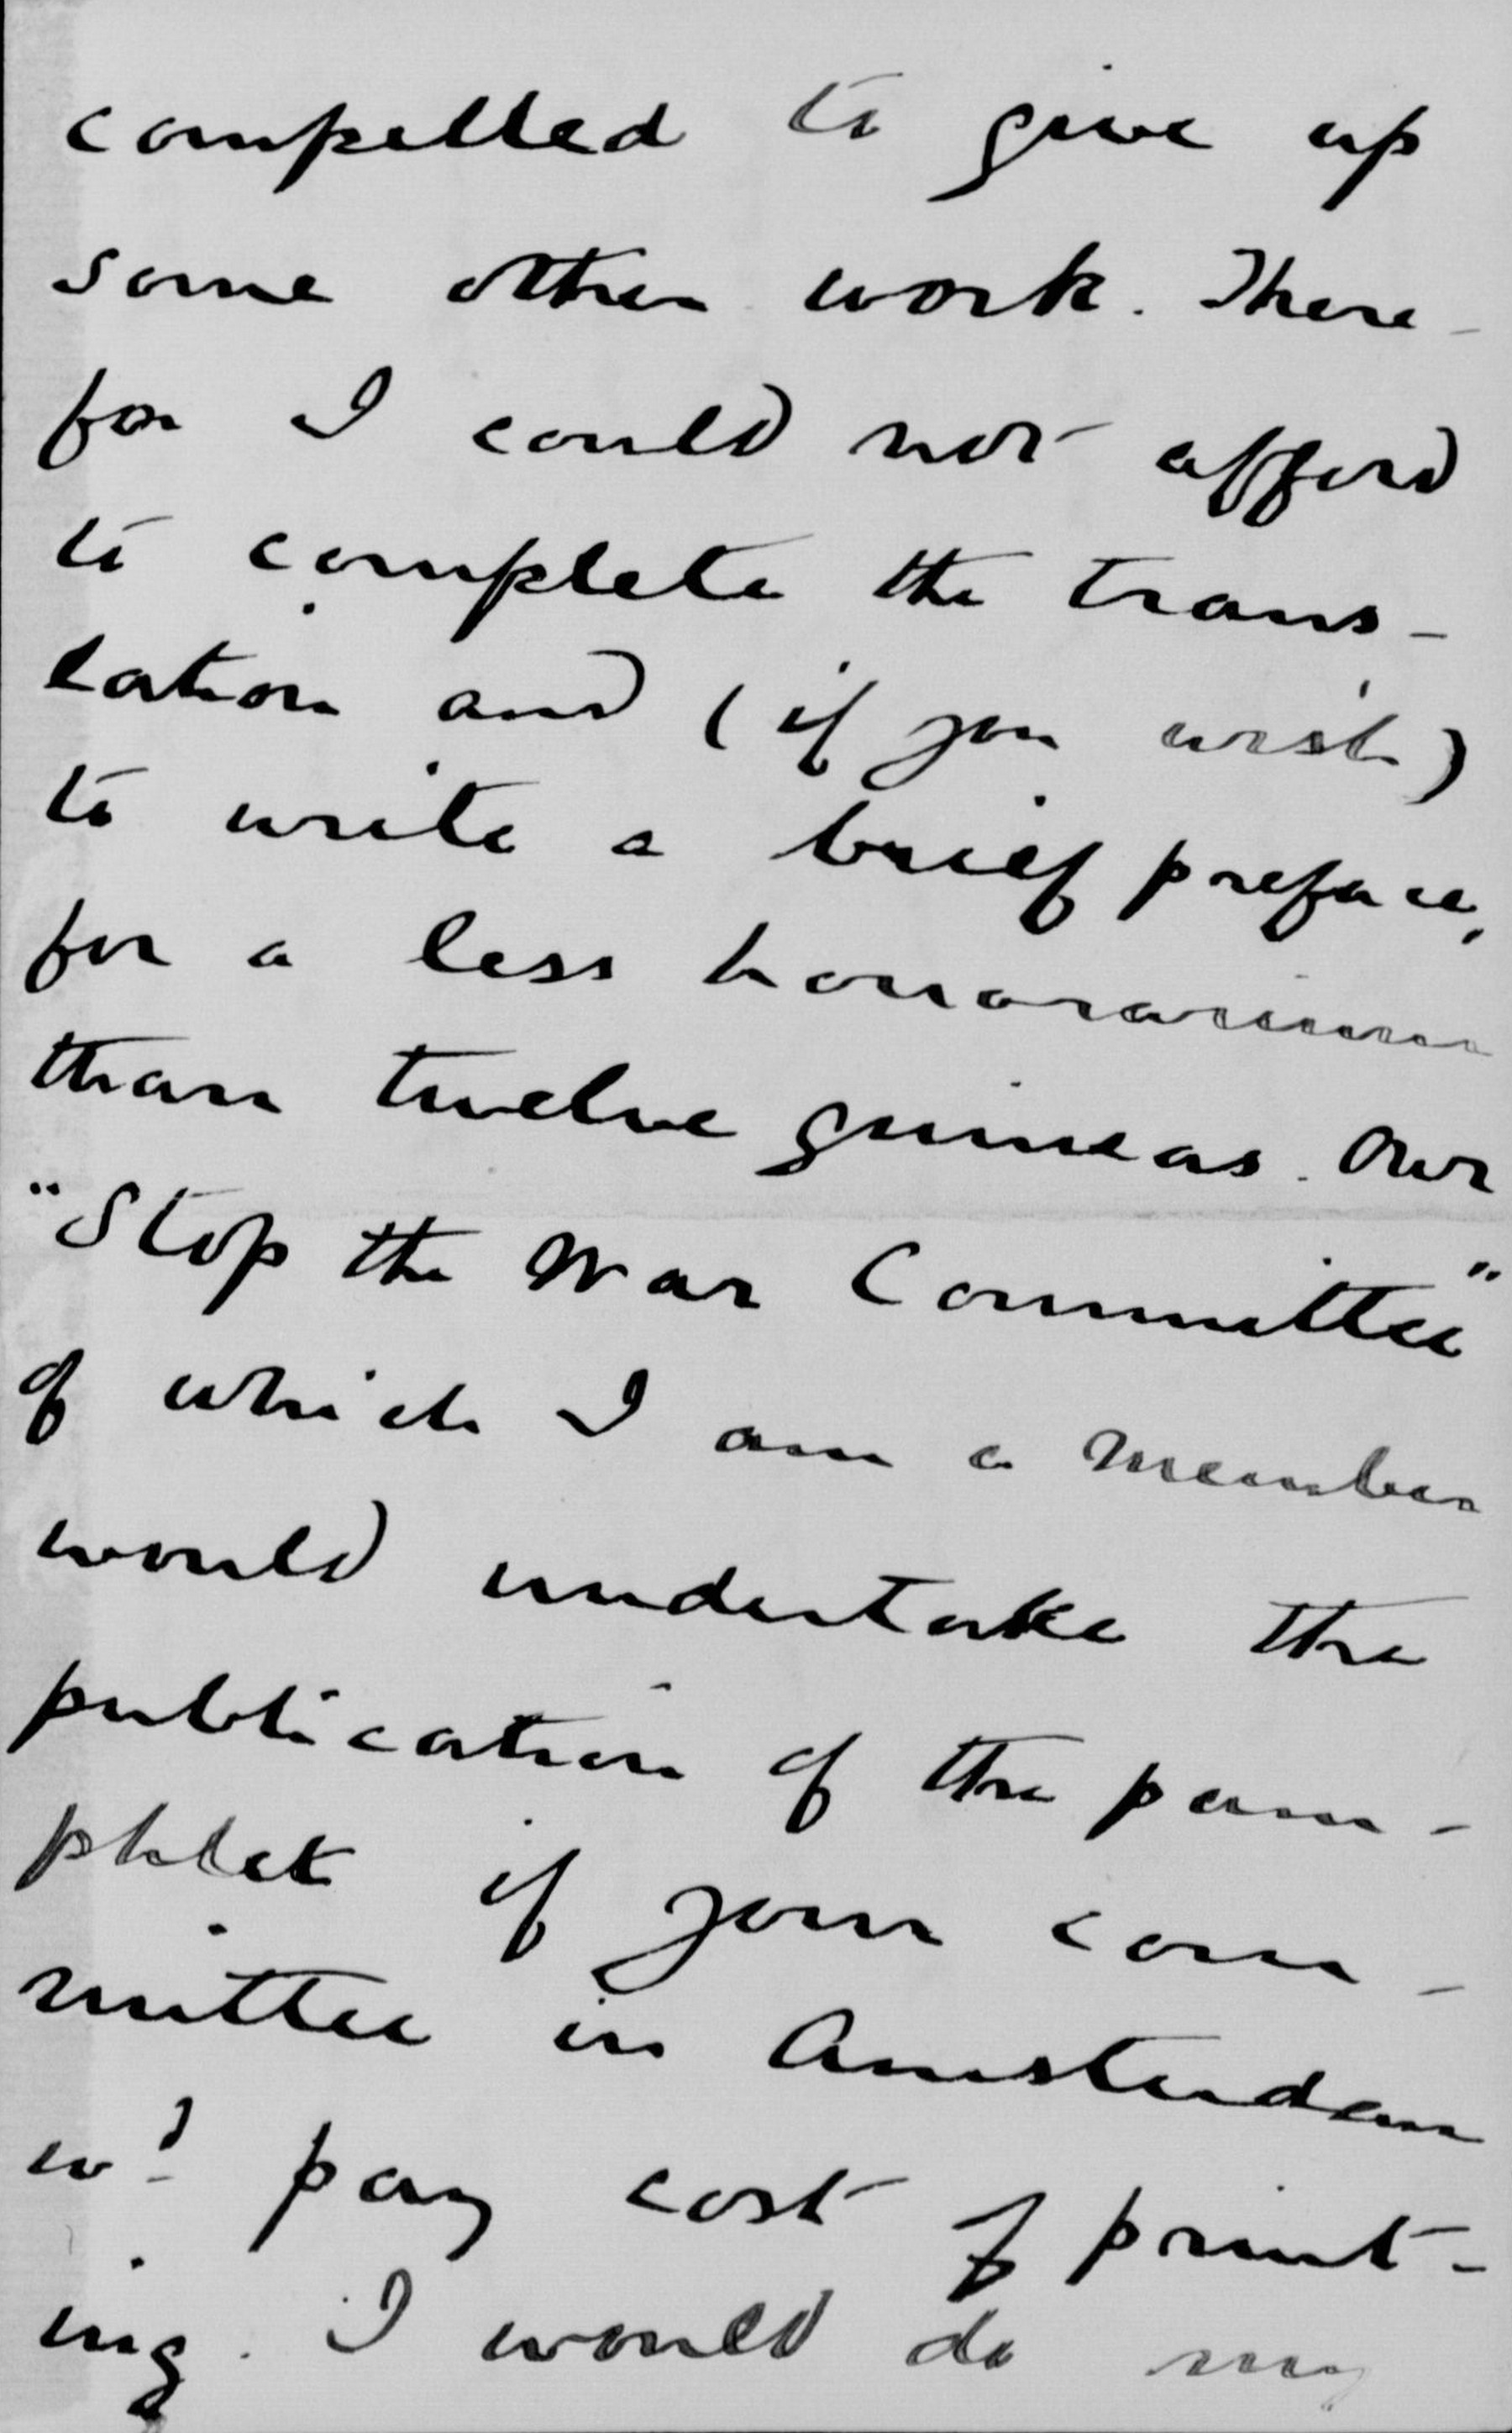 compelled to give up
some other work. There-
for I could not afford
to complete the trans-
lation and (if you wish)
to write a brief preface,
for a less honorarium
than twelve guineas. Our
"Stop the War Committee"
of which I am a member
would undertake the
publication of the pam-
phlet if your com-
mittee in Amsterdam
wd pay cost of print-
ing. I would do my